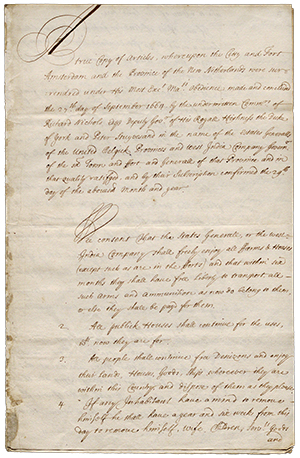 A true Copy of Articles, whereupon the City and Fort
Amsterdam and the Province of the New Netherlands were sur=
rendred under his Most Exct. Maties. obedience, made and concluded
the 27th day of September 1664. by the underwritten Commrs.
Richard Nicholls Esqr Deputy Govr. of his Royall Highness the Duke
of York and Peter Stuyvesand in the name of the Estates Generale
of the United Belgick Provinces and West India Company Govern.
of the sd. Town and Fort and Generale of that Province and in
that quality ratifyed, and by their Subscription confirmed the 29th
day of the abovesd. Month and year.
We consent That the States Generale, or the West
India Company shall freely enjoy all Farms & Houses
(except such as are in the Forts) and that within six
months they shall have free liberty to transport all
such arms and ammunition as now do belong to them,
or else they shall be paid for them.
2. All publick Houses shall continue for the uses,
wch. now they are for.
3. All people shall continue free Denizons and enjoy
their lands, Houses, Goods, Ships wherever they are
within this Country and dispose of them as they please.
4. If any Inhabitant have a mind to remove
himself he shall have a year and six weeks from this
day to remove himself, Wife, Children, Servts. Goods
and